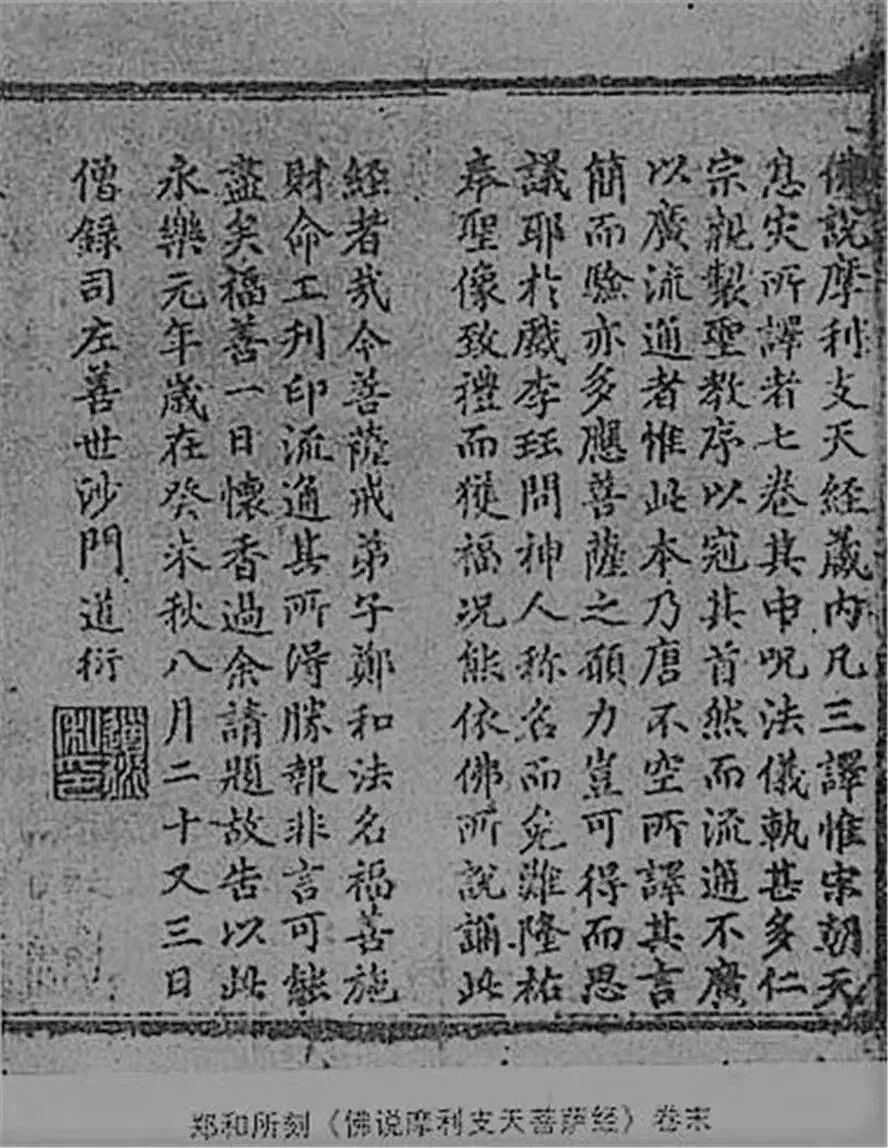 佛說摩利支天經蔵内凡三譯惟宋朝天
息灾所譯者七卷其中呪法儀軌甚多仁
宗親製聖教序以冠其首然而流通不廣
以廣流通者惟此本乃唐不空所譯其言
簡而驗亦多應菩薩之願力豈可得而思
議耶於戲李珏問神人称名而免難隆祐
奉聖像致禮而獲福況能依佛所說誦此
經者㦲今菩薩戒弟子鄭和法名福善施
財命工刋印流通其所得勝報非言可能
盡矣福善一日懷香過余請題故告以此
永樂元年歲在癸未秋八月二十又三日
僧録司左善世沙門道衍
郑和所刻《佛说摩利支天菩萨经》卷末